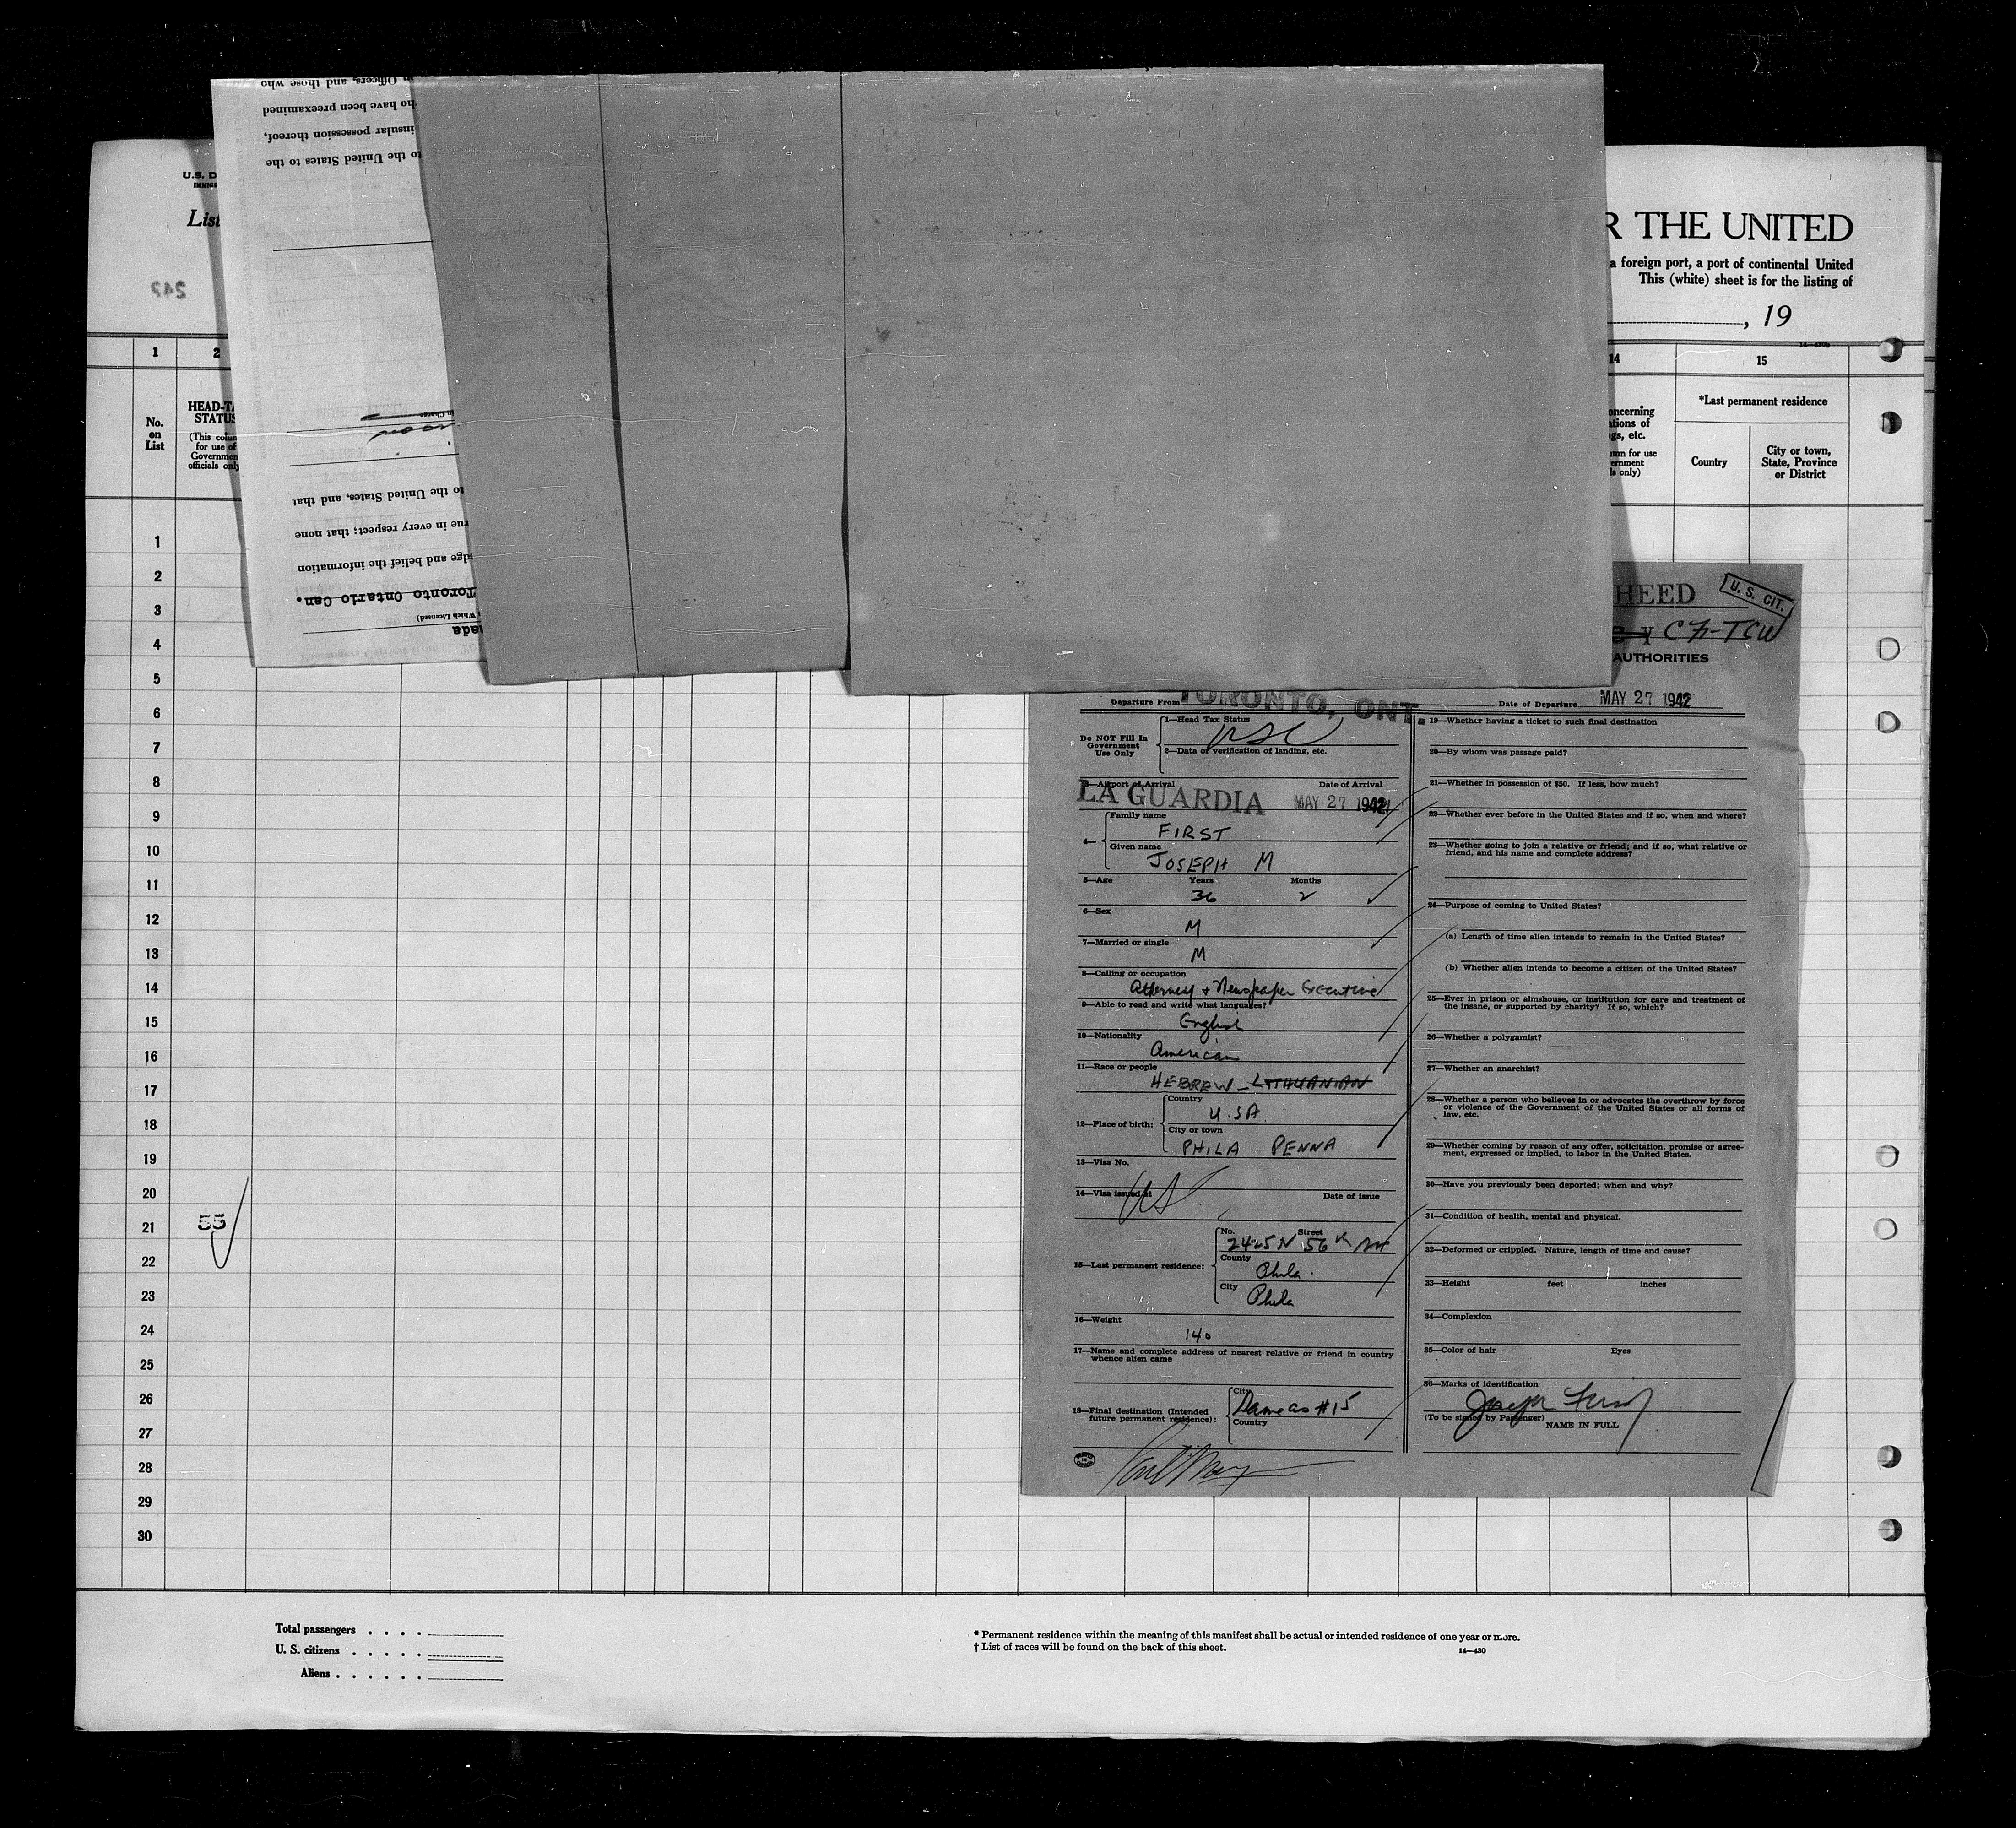 m Officers, and those who
ho have been preexamined
insular possession thereof,
to the United States to the
in Charge
to the United States, and that
rue in every respect; that none
dge and belief the information
Toronto Ontario Can.
Which Licensed)
nada
U.S. D
IMMIG
List
242
R THE UNITED
a foreign port, a port of continental United
This (white) sheet is for the listing of
, 19
1 2 14 15
No. on List
HEAD-TA
STATUS
(This colum
for use of
Governmen
officials only
oncerning
ations of
gs, etc.
umn for use
ernment
ls only)
*Last permanent residence
Country
City or town,
State, Province
or District
1
2
3
4
5
6
7
8
9
10
11
12
13
14
15
16
17
18
19
20
21
22
23
24
25
26
27
28
29
30
55
HEED
U. S. CIT.
AUTHORITIES
Departure From TORONTO, ONT.
Date of Departure MAY 27 1942
Do NOT Fill In
Government
Use Only
1—Head Tax Status
USC
2—Data of verification of landing, etc.
3—Airport of Arrival Date of Arrival
LA GUARDIA MAY 27 1942
4—
Family name
FIRST
Given name
JOSEPH M
5—Age Years Months
36 2
6—Sex
M
7—Married or single
M
8—Calling or occupation
Attorney + Newspaper Executive
9—Able to read and write what languages?
English
10—Nationality
American
11—Race or people
HEBREW - LITHUANIAN
12—Place of birth:
Country
U.S.A.
City or town
PHILA PENNA
13—Visa No.
14—Visa issued at Date of issue
US
15—Last permanent residence:
No. Street
2465 N 56th St
County
Phila.
City
Phila
16—Weight
140
17—Name and complete address of nearest relative or friend in country
whence alien came
18—Final destination (Intended
future permanent residence):
City
Same as #15
Country
19—Whether having a ticket to such final destination
20—By whom was passage paid?
21—Whether in possession of $50. If less, how much?
22—Whether ever before in the United States and if so, when and where?
23—Whether going to join a relative or friend; and if so, what relative or
friend, and his name and complete address?
24—Purpose of coming to United States?
(a) Length of time alien intends to remain in the United States?
(b) Whether alien intends to become a citizen of the United States?
25—Ever in prison or almshouse, or institution for care and treatment of
the insane, or supported by charity? If so, which?
26—Whether a polygamist?
27—Whether an anarchist?
28—Whether a person who believes in or advocates the overthrow by force
or violence of the Government of the United States or all forms of
law, etc.
29—Whether coming by reason of any offer, solicitation, promise or agree-
ment, expressed or implied, to labor in the United States.
30—Have you previously been deported; when and why?
31—Condition of health, mental and physical.
32—Deformed or crippled. Nature, length of time and cause?
33—Height feet inches
34—Complexion
35—Color of hair Eyes
36—Marks of identification
Joseph First
(To be signed by Passenger) NAME IN FULL
Total passengers . . . .
U. S. citizens . . . . .
Aliens . . . . . .
* Permanent residence within the meaning of this manifest shall be actual or intended residence of one year or more.
† List of races will be found on the back of this sheet.
14—430